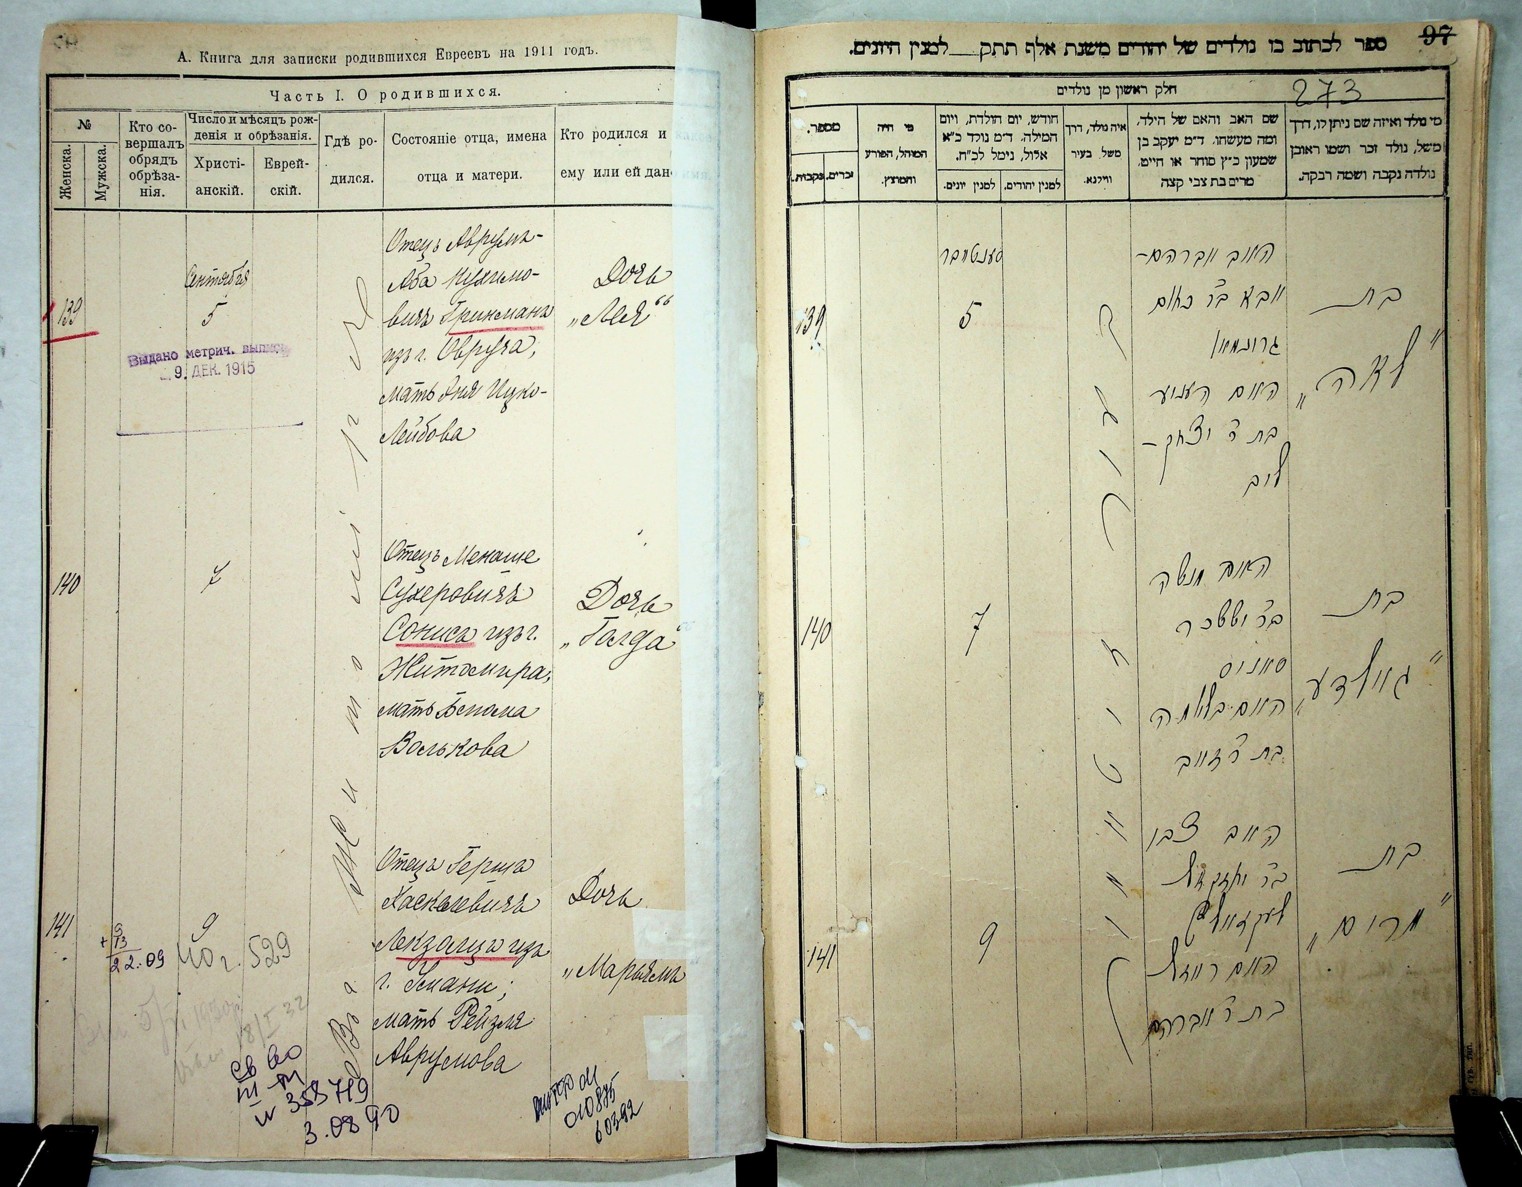 А. Книга для записки родившихся Евреевъ на 1911 годъ.
Часть I. О родившихся.
№
Женска.
Мужска.
Кто со-
вершалъ
обрядъ
обрѣза-
нія.
Число и мѣсяцъ рож-
денія и обрѣзанія.
Христі-
анскій.
Еврей-
скій.
Гдѣ ро-
дился.
Состояніе отца, имена
отца и матери.
Кто родился и
ему или ей дан
139
Сентября
5
Отецъ Аврумъ-
Аба
вичъ Гринманъ
изъ г. Овруча,
мать Ицко-
Лейбова
Дочь
„Лея“
Выдано метрич. выпись
9. ДЕК. 1915
Въ Житомірѣ
140
7
Отецъ Менаше
Сухеровичъ
Сониса изъ г.
Житомира,
мать
Волькова
Дочь
„Голда“
141
9
Отецъ Герша
Хаскелевичъ
изъ
г. Умани;
мать Рейзля
Аврумова
Дочь
„Марьямъ“
9
+ 13
22.09
40 г. 529
18/I 32
III
№ 358779
3.08 90
010875
60392
ספר לכתוב בו נולדים של יהודים משנת אלף תתק___למנין היונים.
97
273
חלק ראשון מן נולדים
מספר.
זכרים.
נקבות.
מי היה
המוהל, הפורע
והמוצץ.
חודש, יום הולדת, ויום
המילה. ד״מ נולד כ״א
אלול, נימל לכ״ח.
למנין יונים.
למנין יהודים.
איה נולד, דרך
משל. בעיר
ווילנא.
שם האב והאם של הילד,
ומה מעשהו. ד״מ יעקב בן
שמעון כ״ץ סוחר או חייט.
מרים בת צבי קצה
מי נולד ואיזה שם ניתן לו, דרך
משל, נולד זכר ושמו ראובן
נולדה נקבה ושמה רבקה.
139
סענטיאבר
5
האב אברהם-
אבא בר׳ נחום
גרינמאן
האם
בת ר׳ יצחק-
ליב
בת
„לאה“
140
7
האב מנשה
בר׳ יששכר
סאניס
האם
בת ר׳ זאב
בת
„גאלדע“
141
9
האב צבי
בר׳ יחזקאל
האם רייזל
בת ר׳ אברהם
בת
„מרים“